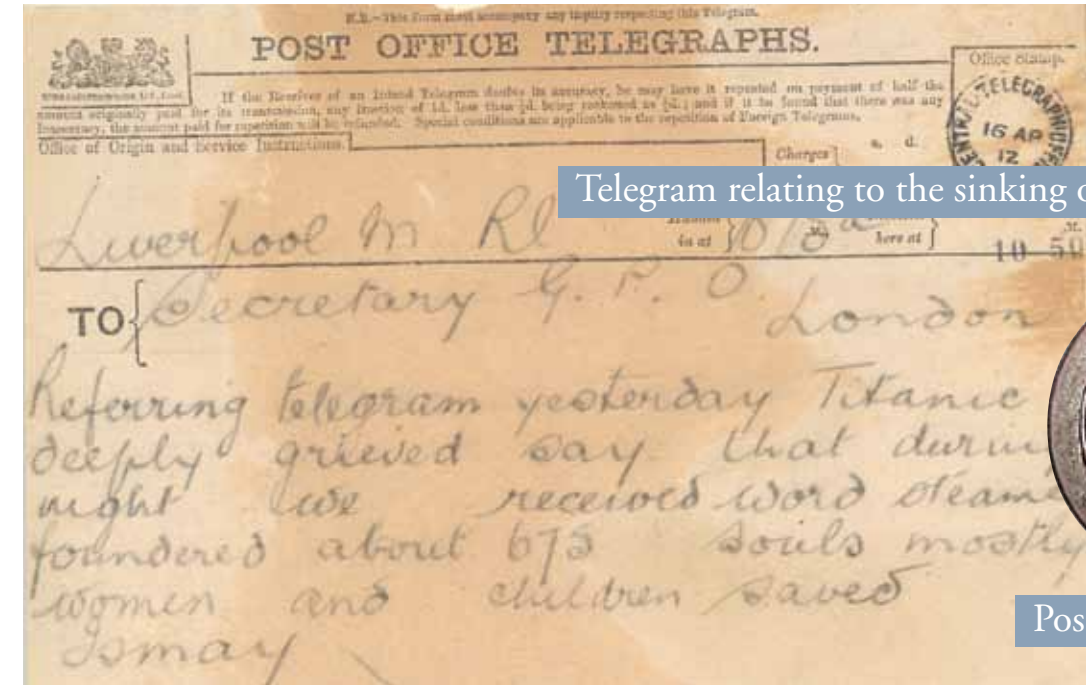 N.B.—This Form must accompany any inquiry respecting this Telegram.
POST OFFICE TELEGRAPHS.
If the Receiver of an Inland Telegram doubts its accuracy, he may have it repeated on payment of half the
amount originally paid for its transmission, any fraction of 1d. less than ½d. being reckoned as ½d.; and if it be found that there was any
inaccuracy, the amount paid for repetition will be refunded. Special conditions are applicable to the repetition of Foreign Telegrams.
Office of Origin and Service Instructions.
Charges
s. d.
Office Stamp.
CENTRAL TELEGRAPH OFFI
16 AP
12
Telegram relating to the sinking o
Liverpool M Rl
in at
here at
M.
10 50
TO
Secretary G. P. O.
London
Referring telegram yesterday Titanic
deeply grieved say that durin
night we received word steame
foundered about 675 souls mostly
women and children saved
Ismay
Pos